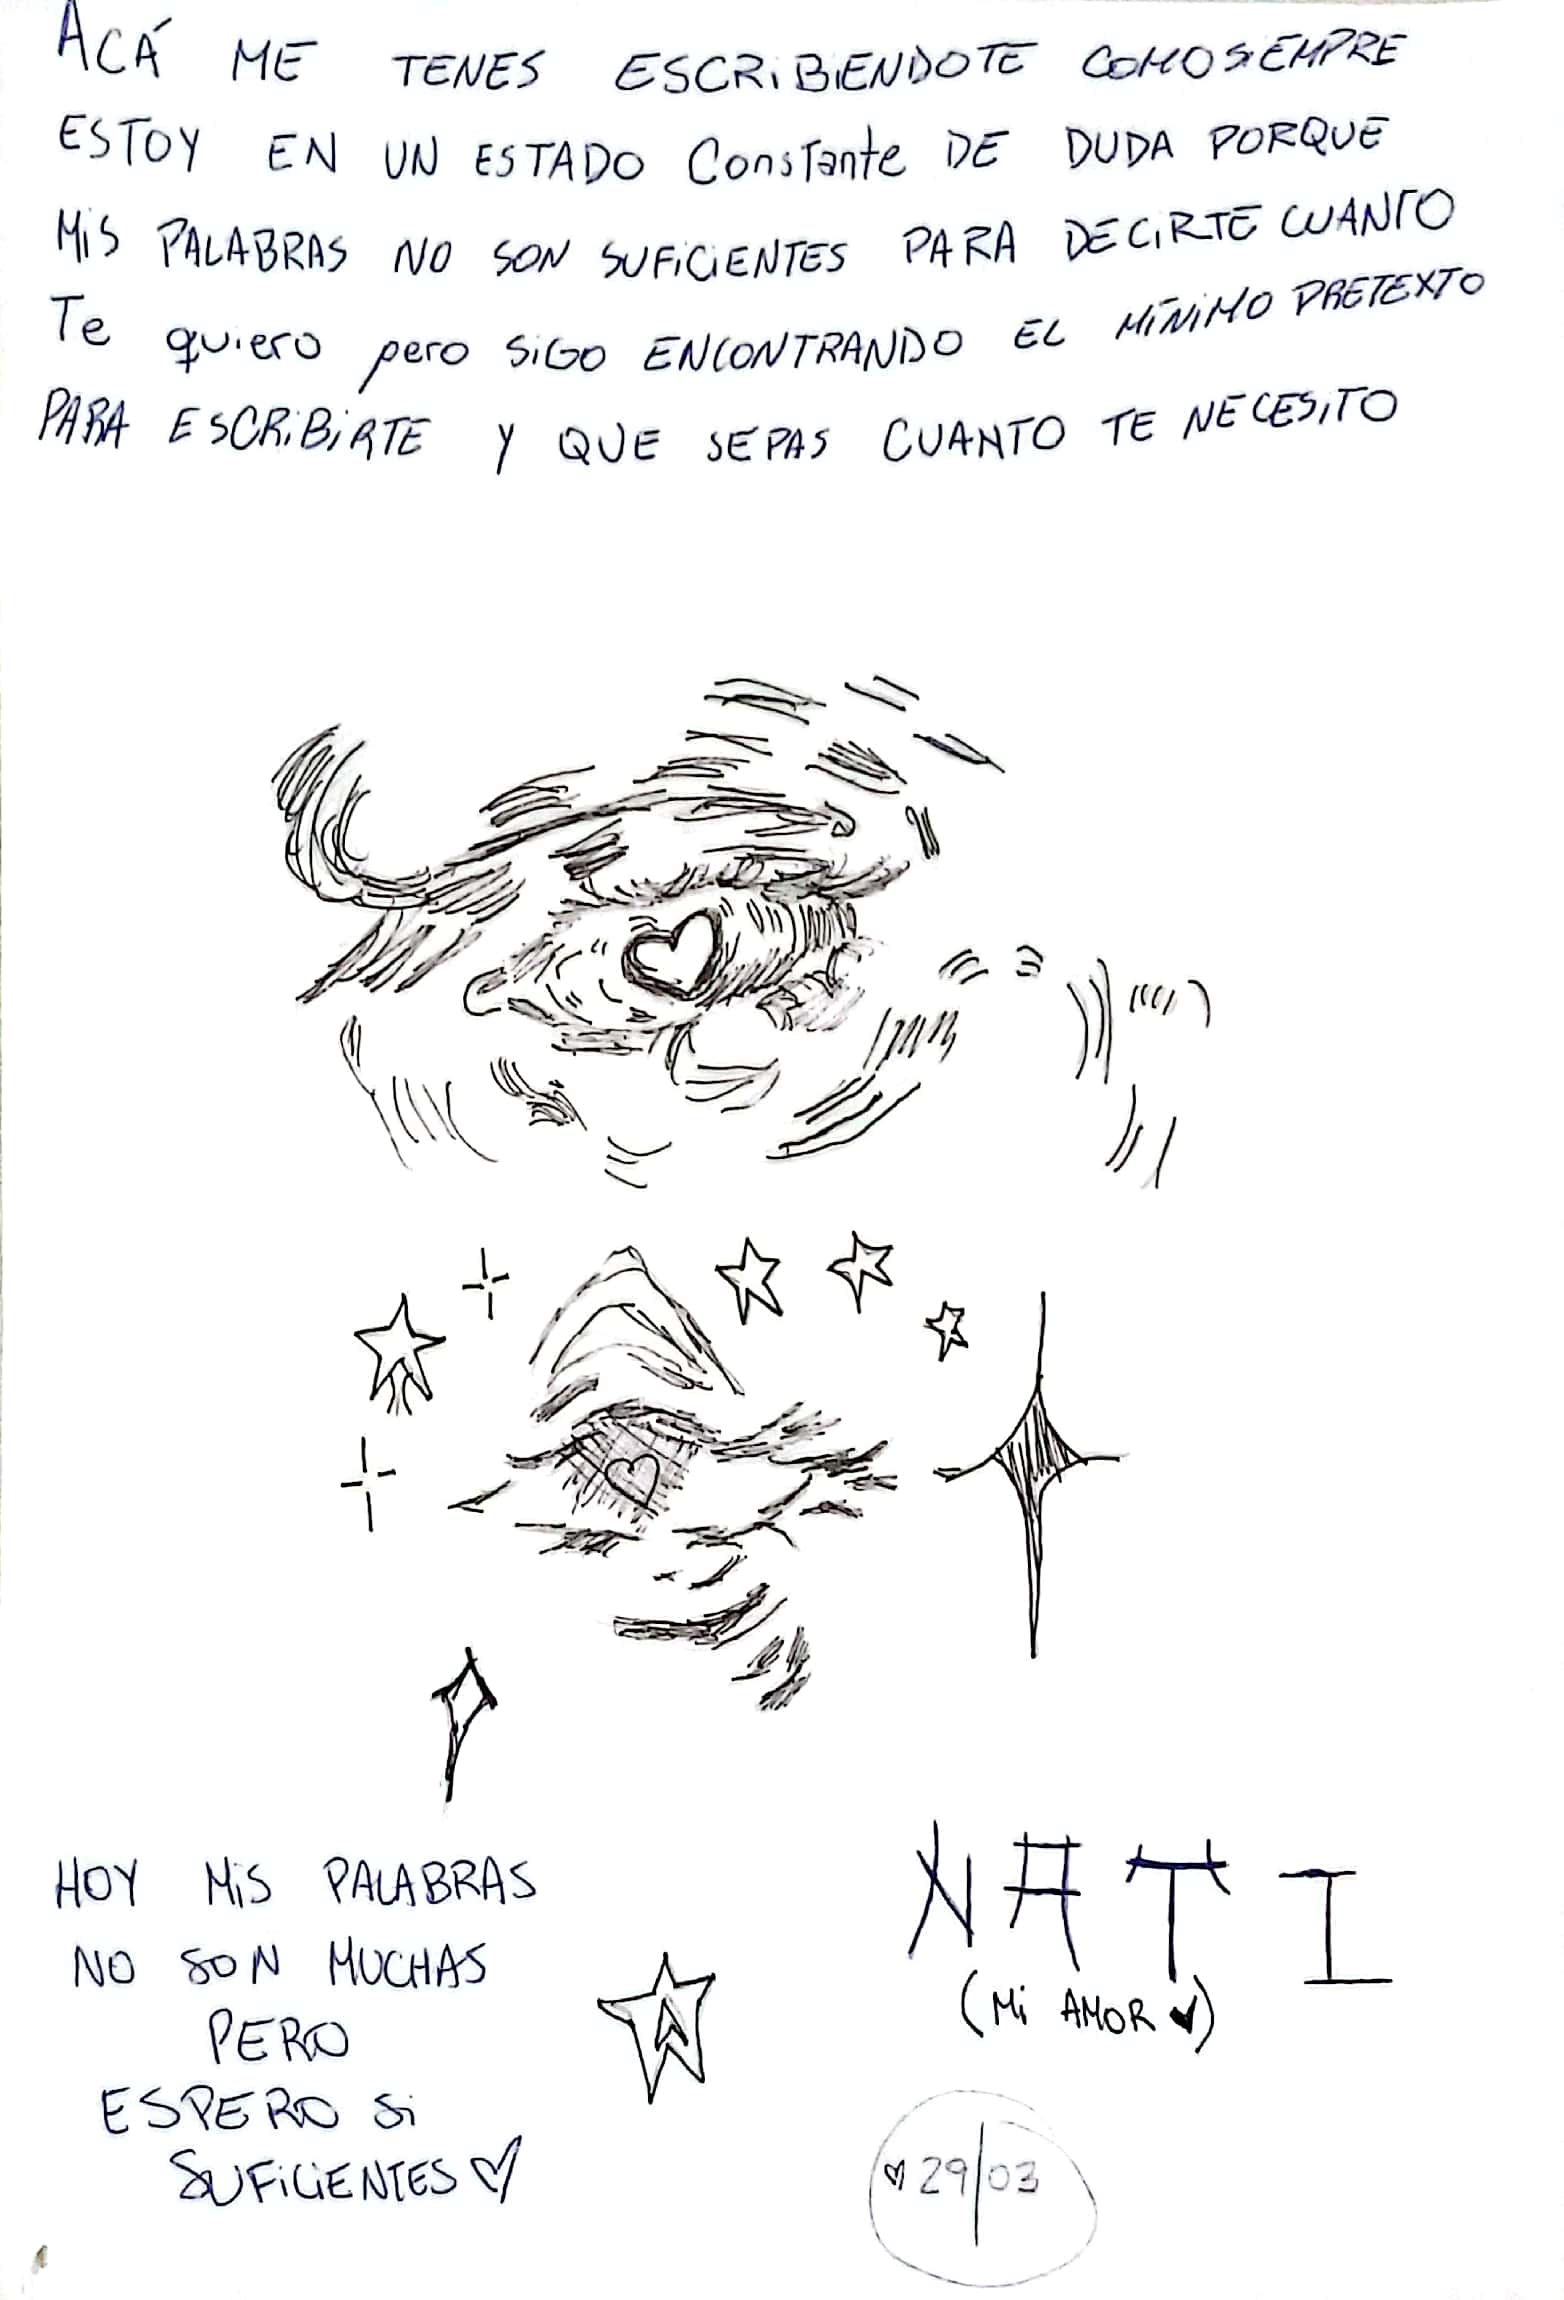 ACÁ ME TENES ESCRIBIENDOTE COMO SIEMPRE
ESTOY EN UN ESTADO Constante DE DUDA PORQUE
MIS PALABRAS NO SON SUFICIENTES PARA DECIRTE CUANTO
Te quiero pero SIGO ENCONTRANDO EL MÍNIMO PRETEXTO
PARA ESCRIBIRTE Y QUE SEPAS CUANTO TE NECESITO
HOY MIS PALABRAS
NO SON MUCHAS
PERO
ESPERO SI
SUFICIENTES ♡
NATI
(Mi AMOR ♥)
♡ 29/03